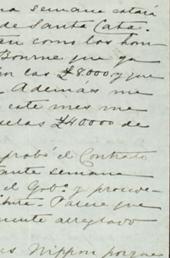 a semana estará
de Santa Cata-
en como los hon-
Bourne que ya
on las £8000 y que
. Además me
este mes me
uelas £40000 de
probó el Contrato
ante semana
el Gobº y
Parece que
mente arreglado
us Nippon porque